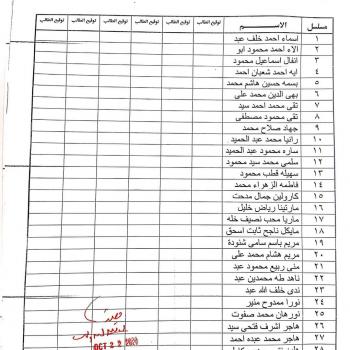 مسلسل الاســـم توقيع الطالب توقيع الطالب توقيع الطالب توقيع الطالب توقيع الطالب توقيع الطالب
١ اسماء احمد خلف عبد
٢ الاء احمد محمود ابو
٣ انفال اسماعيل محمود
٤ ايه احمد شعبان احمد
٥ بسمه حسين هاشم محمد
٦ بهى الدين محمد على
٧ تقى محمد احمد سيد
٨ تقى محمود مصطفى
٩ جهاد صلاح محمد
١٠ رانيا محمد عبد الحميد
١١ ساره محمود عبد الحميد
١٢ سلمى محمد سيد محمود
١٣ سهيله قطب محمود
١٤ فاطمه الزهراء محمد
١٥ كارولين جمال مدحت
١٦ مارتينا رياض خليل
١٧ ماريا محب نصيف خله
١٨ مايكل ناجح ثابت اسحق
١٩ مريم باسم سامى شنودة
٢٠ مريم هشام محمد على
٢١ منى ربيع محمود عبد
٢٢ ناهد طه محمدين عبد
٢٣ ندى خلف الله عبد
٢٤ نورا ممدوح منير
٢٥ نورهان محمد صفوت
٢٦ هاجر اشرف فتحى سيد
٢٧ هاجر محمد عبده احمد
٢٨
OCT 2 2 2020